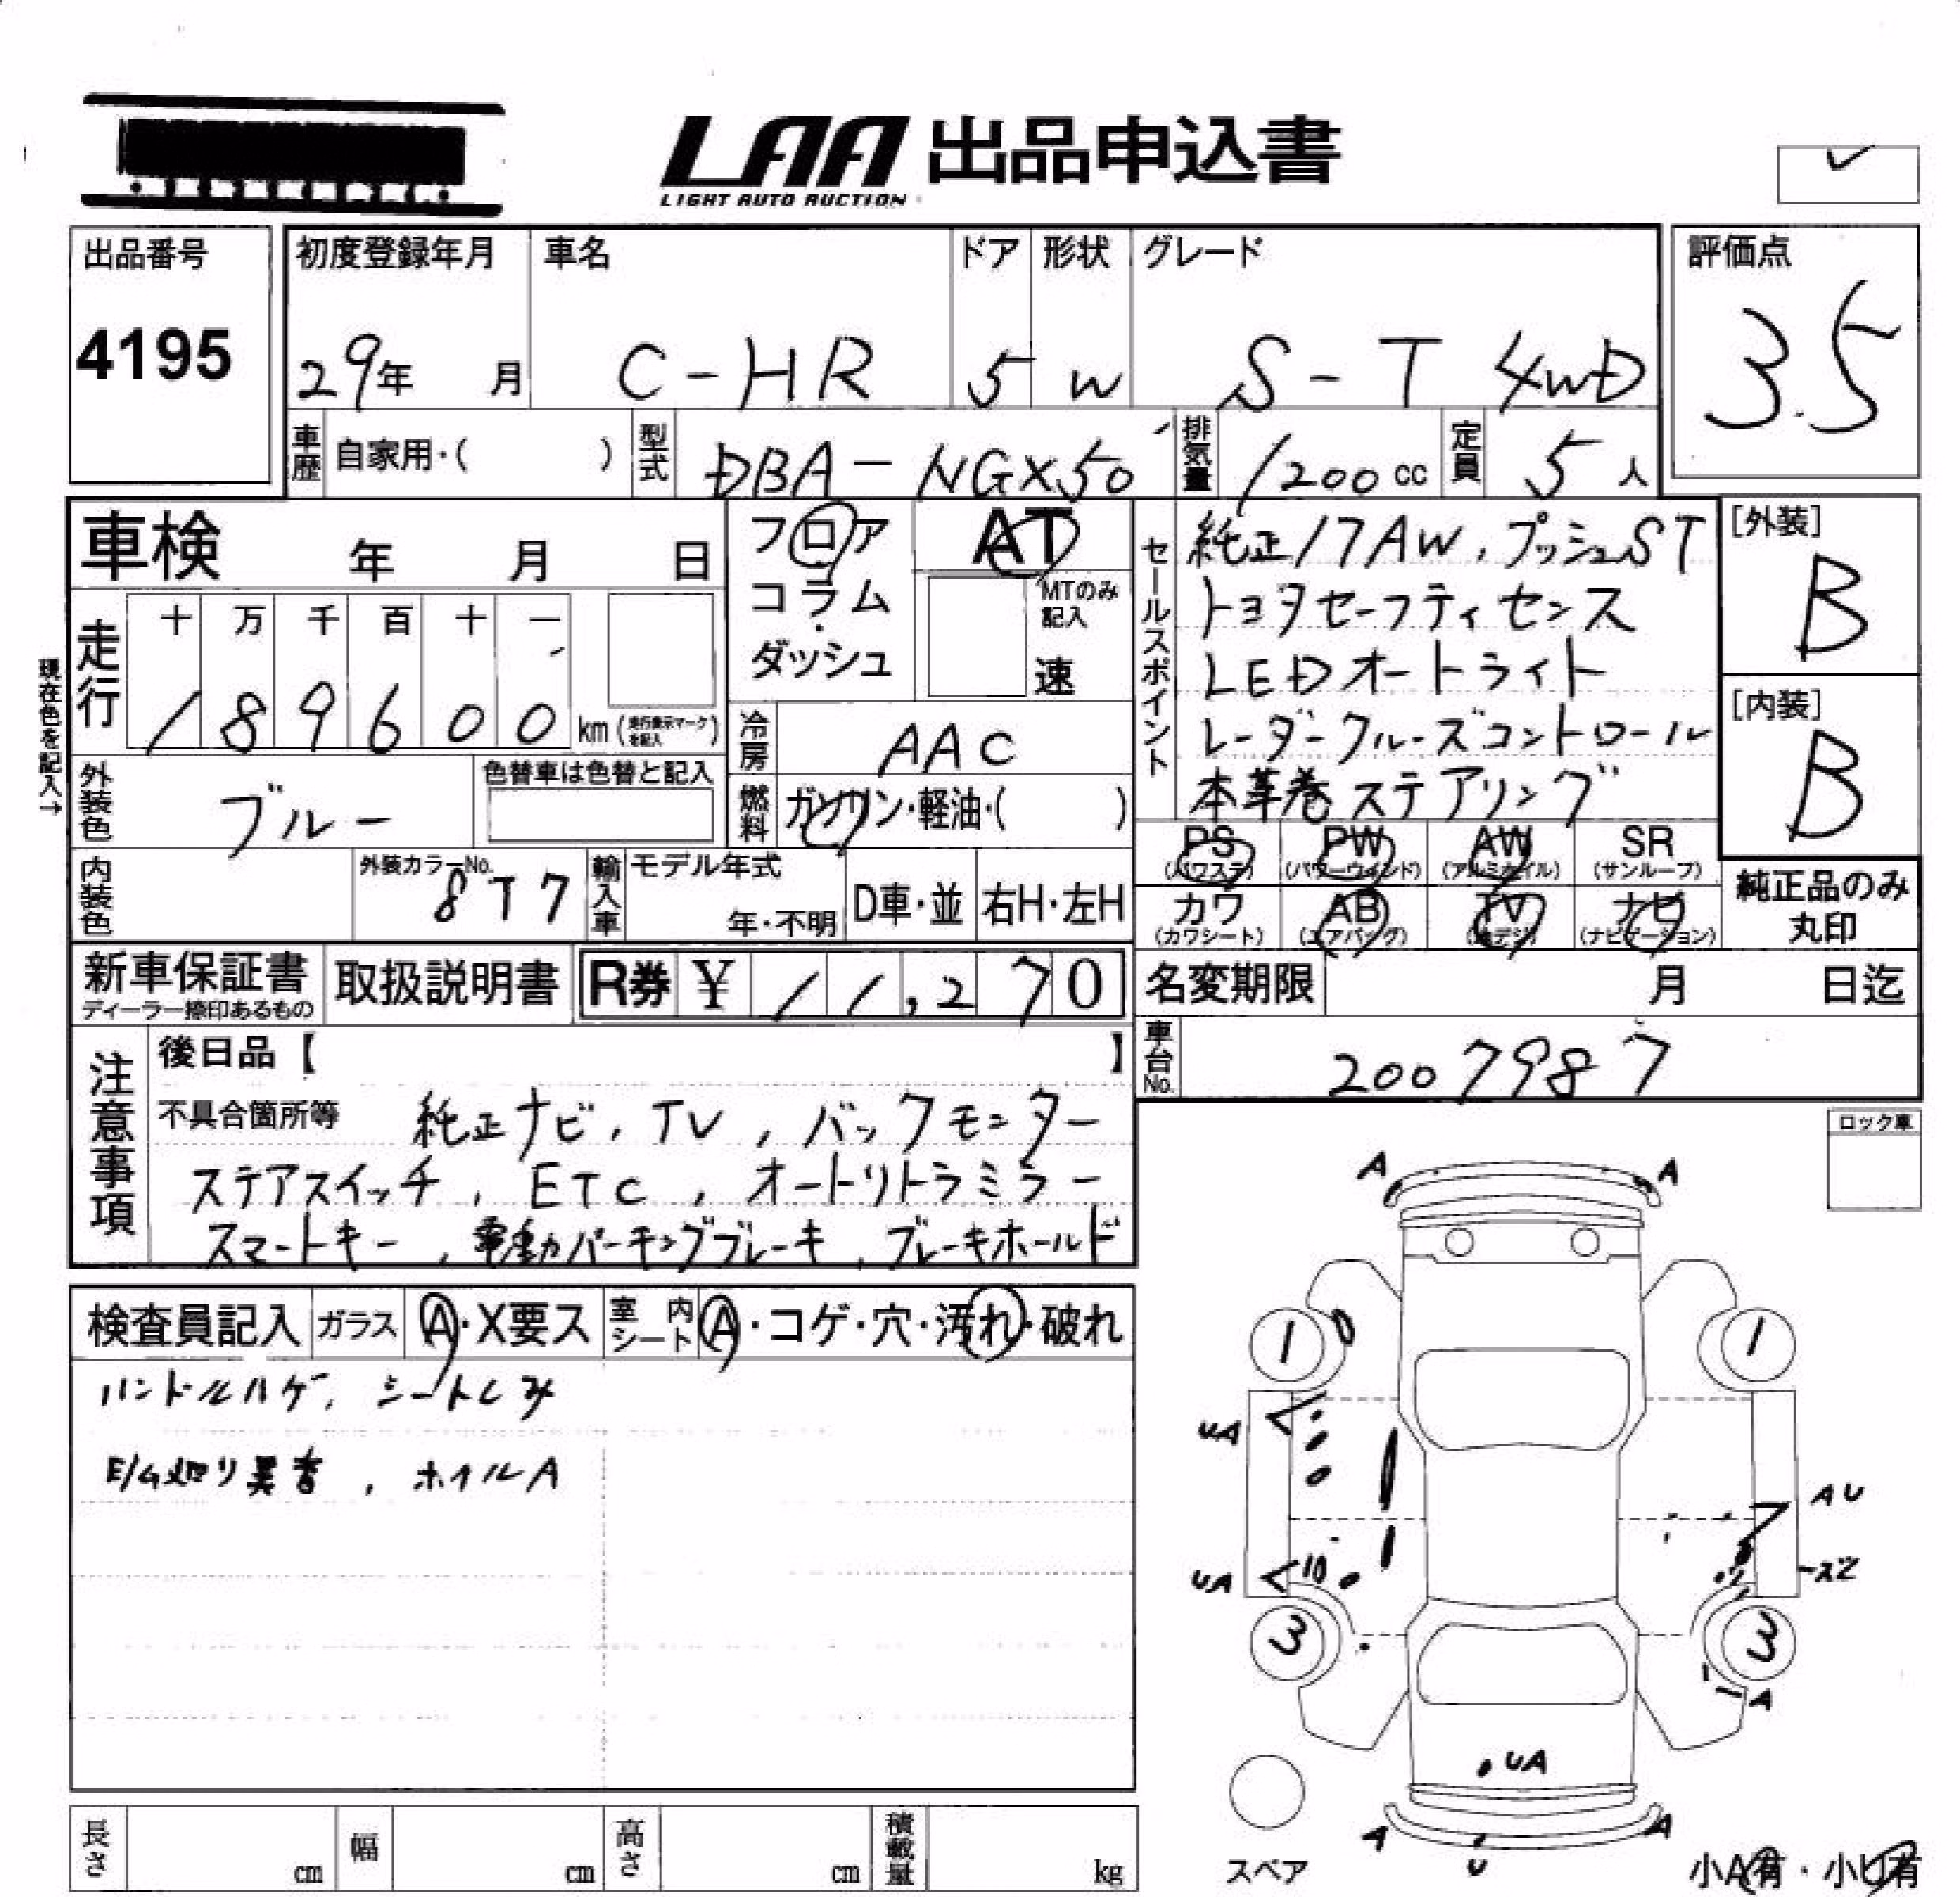 LAA 出品申込書
LIGHT AUTO AUCTION
出品番号 初度登録年月 車名 ドア 形状 グレード 評価点
4195 29年 月 C-HR 5 W S-T 4WD 3.5
車歴 自家用・( ) 型式 DBA-NGX50 排気量 1200 cc 定員 5人
車検 年 月 日
フロア
コラム
ダッシュ
AT
MTのみ記入
速
現在色を記入→
走行 十 万 千 百 十 一
189600 km (走行表示マークを記入)
冷房 AAC
燃料 ガソリン・軽油・( )
外装色 ブルー 色替車は色替と記入
内装色 外装カラーNo. 8T7 輸入車 モデル年式 年・不明 D車・並 右H・左H
セールスポイント
純正17AW、プッシュST
トヨタセーフティセンス
LEDオートライト
レーダークルーズコントロール
本革巻ステアリング
[外装]
B
[内装]
B
PS PW AW SR
(パワステ) (パワーウィンド) (アルミホイル) (サンルーフ)
カワ AB TV ナビ
(カワシート) (エアバッグ) (地デジ) (ナビゲーション)
純正品のみ
丸印
新車保証書 取扱説明書 R券 ¥ 11,270
ディーラー捺印あるもの
名変期限 月 日迄
車台No. 2007987
注意事項
後日品【 】
不具合箇所等 純正ナビ、TV、バックモニター
ステアスイッチ、ETC、オートリトラミラー
スマートキー、電動パーキングブレーキ、ブレーキホールド
ロック車
検査員記入 ガラス A・X要ス 室内シート A・コゲ・穴・汚れ・破れ
ハンドルハゲ、シートしみ
E/G廻り異音、ホイルA
A A
1 1
UA
AU
UA 10 ズレ
3 3
A
UA
A A
U
スペア
小A有・小U有
長さ cm 幅 cm 高さ cm 積載量 kg